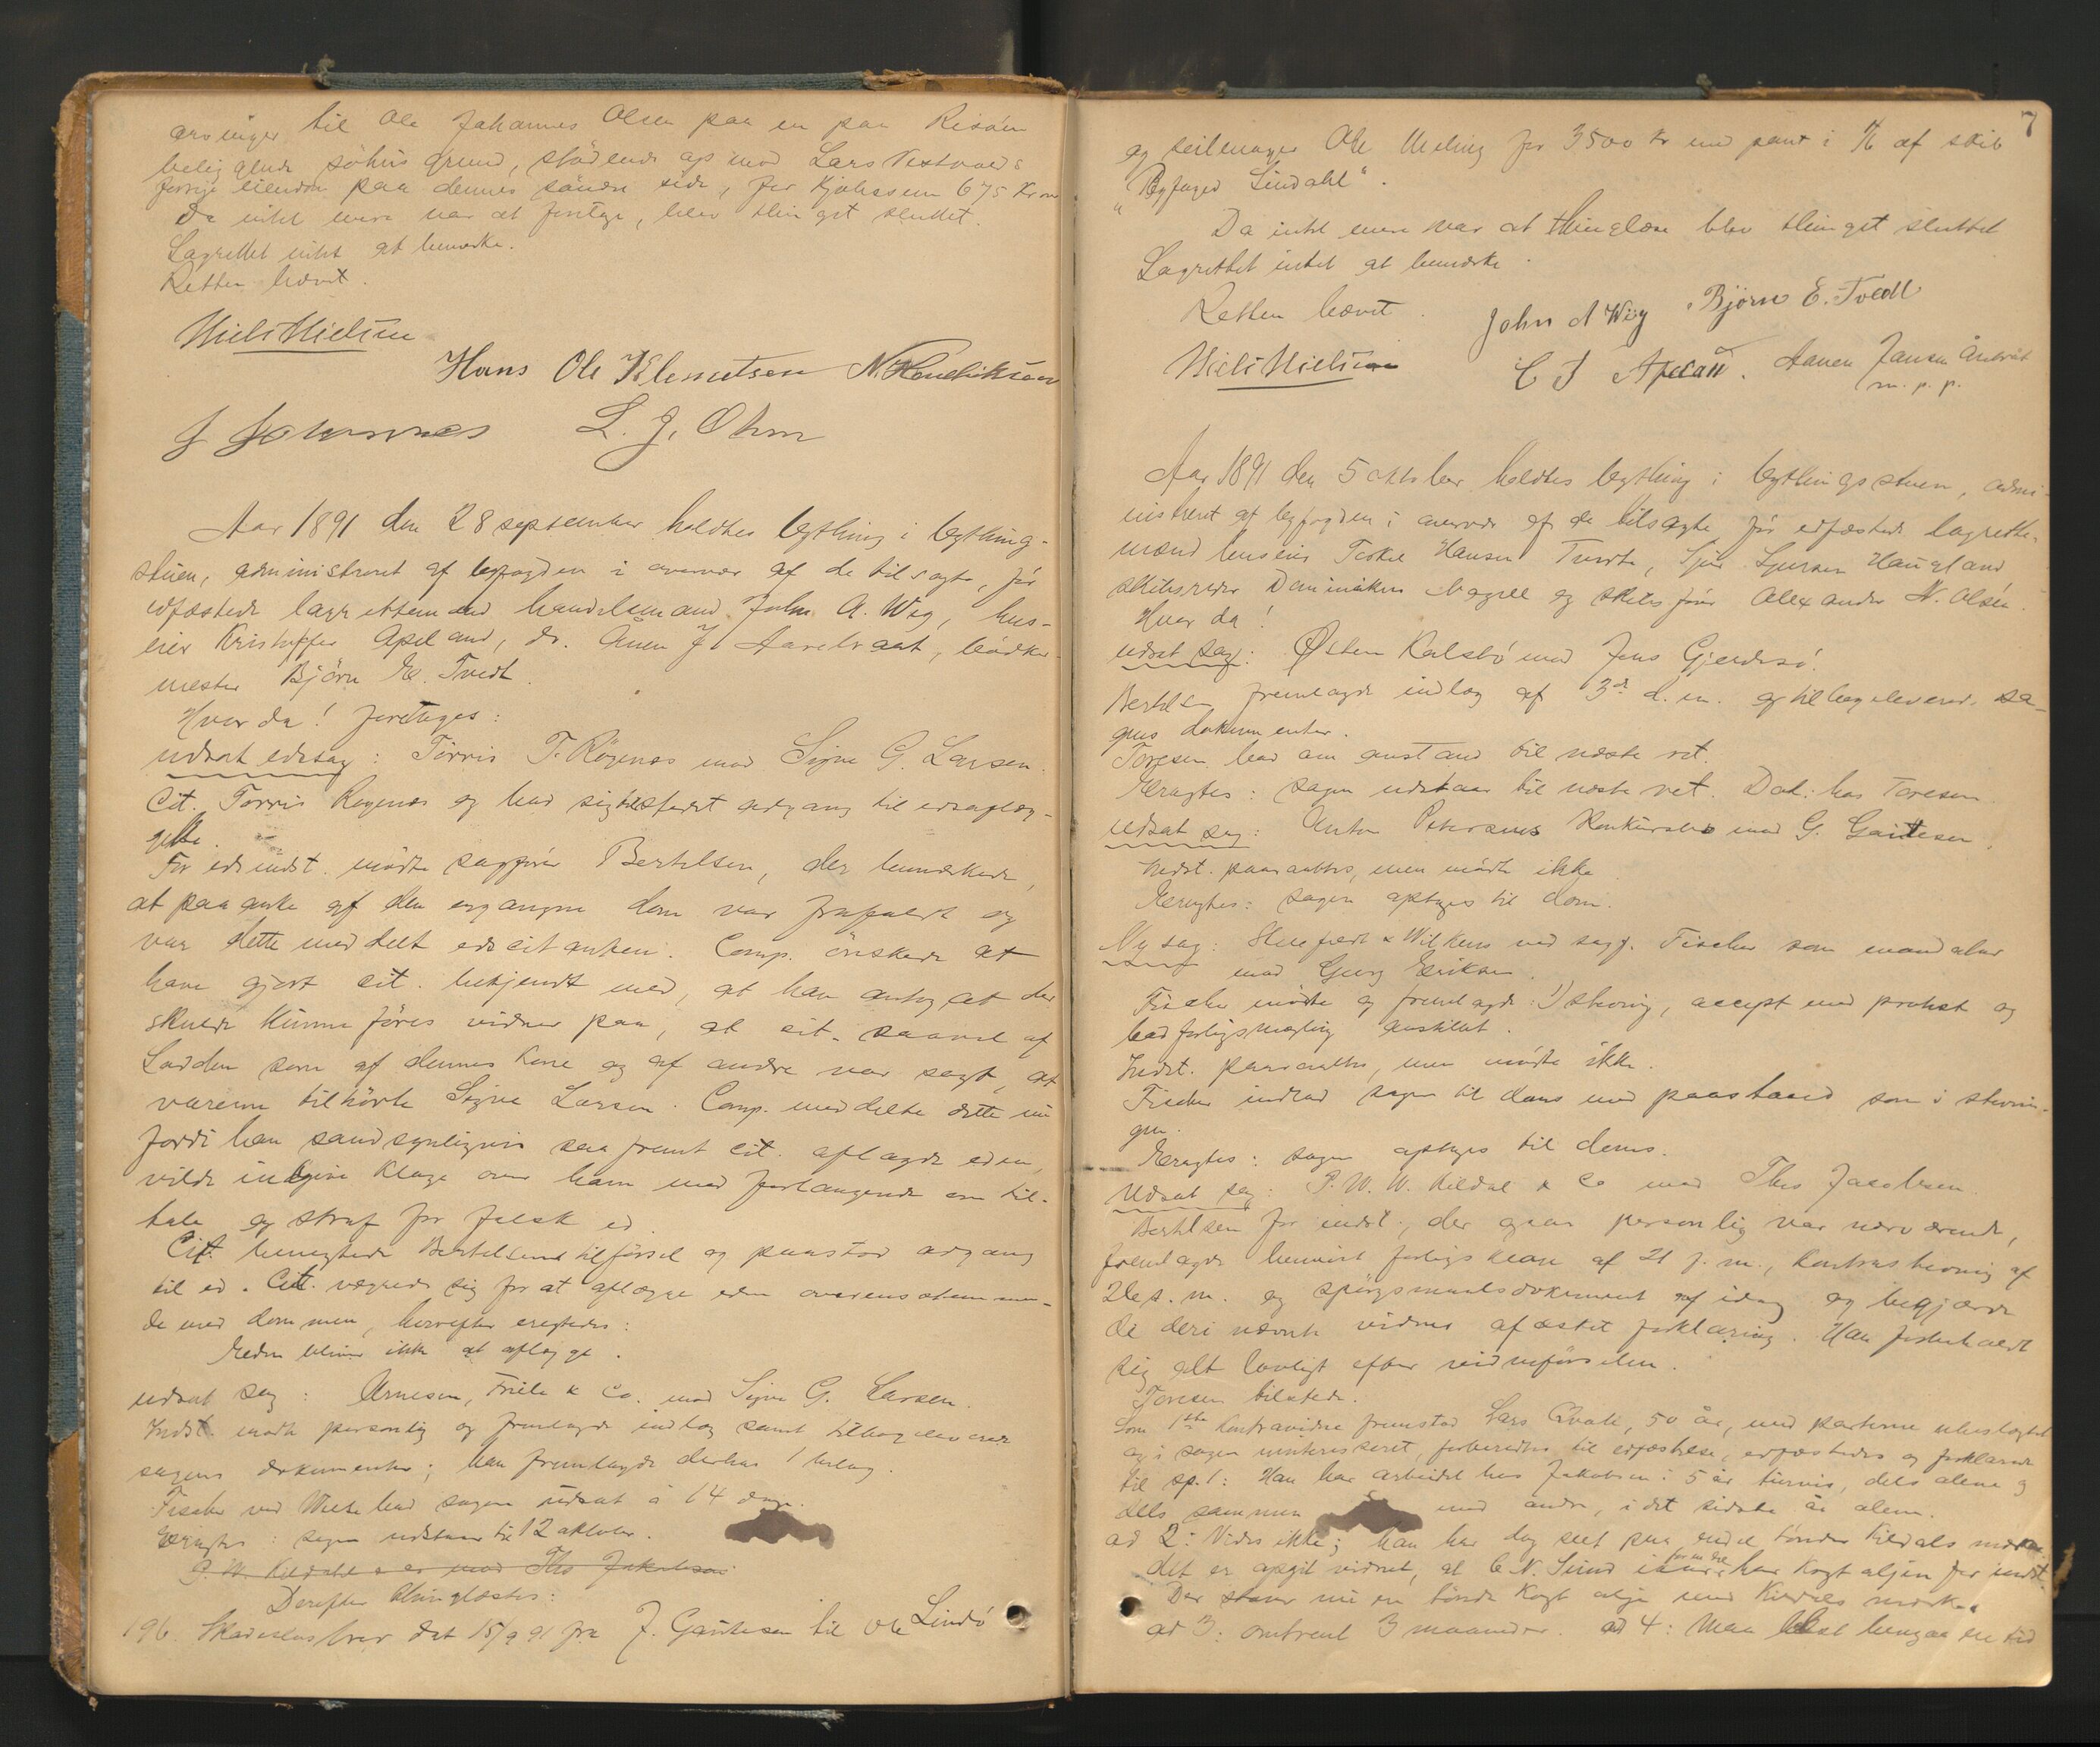 arsinger til Ole Johannes Olsen paa en paa Risøen
beliggende søhus grund, stødende op mod Lars Vestvolds
forrige eiendom paa dennes søndre side, for kjøbesum 675 Kroner
Da intet mere var at foretage, blev thinget sluttet.
Lagrettet intet at bemærke.
Retten hævet.
Niels Nielsen
Hans Ole Klemetsen N. Hendriksen
J Johannes L. J. Ohm
Aar 1891 den 28 september holdtes bything i bything-
stuen, administreret af byfogden i overvær af de tilsagte, før
edfæstede lagrettemænd handelsmand John A. Wig, hus-
eier Kristoffer Apeland, do. Aanen J. , bødker-
mester Bjørn E. Tvedt.
Hvor da! foretoges:
udsat edssag: Torris T. Røgenes mod Signe G. Larsen.
Cit. Torris Røgenes og bad sig tilstedt adgang til edsaflæg-
gelse.
For edsindst. mødte sagfører Bertelsen, der bemærkede,
at paaanke af den ergangne dom var frafaldt og
var dette meddelt edscitanten. Comp. ønskede at
have gjort cit. bekjendt med, at han antog at der
skulde kunne føres vidner paa, at cit. saavel af
Lodden som af dennes kone og af andre var sagt, at
varerne tilhørte Signe Larsen. Comp. meddelte dette nu
fordi han sandsynligvis saafremt cit. aflagde eden,
vilde indgive klage over ham med forlangende om til-
tale og straf for falsk ed.
Cit. benegtede Bertelsens tilførsel og paastod adgang
til ed. Cit. vægrede sig for at aflægge eden overensstemmen-
de med dommen, hvorefter eragtedes:
Eden bliver ikke at aflægge.
udsat sag: Arnesen, Friele & Co. mod Signe G. Larsen.
Indst. mødte personlig og fremlagde indlæg samt tilbageleverede
sagens dokumenter; han fremlagde derhos 1 bilag.
Fischer ved Welte bad sagen udsat à 14 dage.
Eragtes: sagen udstaar til 12 oktober.
P. W. Kildahl & co mod Ths Jakobsen
Derefter thinglæstes:
196. Skadesløsbrev dat 15/9 91 fra J. Gautesen til Ole Lindø
7
og seilmager Ole Meling for 3500 kr med pant i af skib
"Byfoged Lindahl".
Da intet mere var at thinglæse blev thinget sluttet
Lagrettet intet at bemærke.
Retten hævet.
John A Wig Bjørn E. Tvedt
Niels Nielsen
m. p. p.
Aar 1891 den 5 oktober holdtes bything i bythingsstuen, admi-
nistreret af byfogden i overvær af de tilsagte før edfæstede lagrettes-
mænd Hansen Tvedte, Sjur Sjursen Haugland,
skibsreder Daminikus Nagell og skibsfører Alexander N. Olsen.
Hvor da!
udsat sag: Østen Kalstø mod Jens Gjerdesø.
Bertelsen fremlagde indlæg af 3de d. m. og tilbageleverede sa-
gens dokumenter.
Toresen bad om anstand til næste ret.
Eragtes: sagen udstaar til næste ret. Dok: hos Toresen
udsat sag: Anton Petersens konkursbo mod G. Gautesen.
Indst. paaraabtes, men mødte ikke.
Eragtes: sagen optages til dom.
Ny sag: & Wilkens ved sagf. Fischer som mandatar
mod Georg Eriksen.
Fischer mødte og fremlagde: 1) stevning, accept med protest og
bad forligsmægling anstillet.
Indst. paaraabtes, men mødte ikke.
Fischer indlod sagen til doms med paastand som i stevnin-
gen.
Eragtes: sagen optages til doms.
Udsat sag: P. W. W. Kildal & Co mod Ths Jacobsen.
Bertelsen for indst., der ogsaa personlig var nærværende,
fremlagde henvist forligsklage af 21 f. m., kontrastevning af
s. m. og spørgsmaalsdokument af idag og begjærede
de deri nævnte vidners afæskt forklaring. Han forbeholdt
sig alt lovligt efter vidneførselen.
Toresen tilstede.
Som 1ste kontravidne fremstod Lars Qvale, 50 år, med parterne ubeslægtet
og i sagen uinteresseret, forberedtes til edfæstelse, edfæstedes og forklarede
til sp. 1: Han har arbeidet hos Jakobsen i 5 år , dels alene og
dels sammen med andre, i det sidste år alene.
ad 2: Vides ikke; han har dog seet paa endel tønder Kildals mærke
det er opgit vidnet, at C. N. Sund iaar for en del har kogt oljen for indst.
Der staar nu en tønde kogt olje med Kildals mærke.
ad 3: omtrent 3 maaneder. ad 4: Man lod hengaa en tid